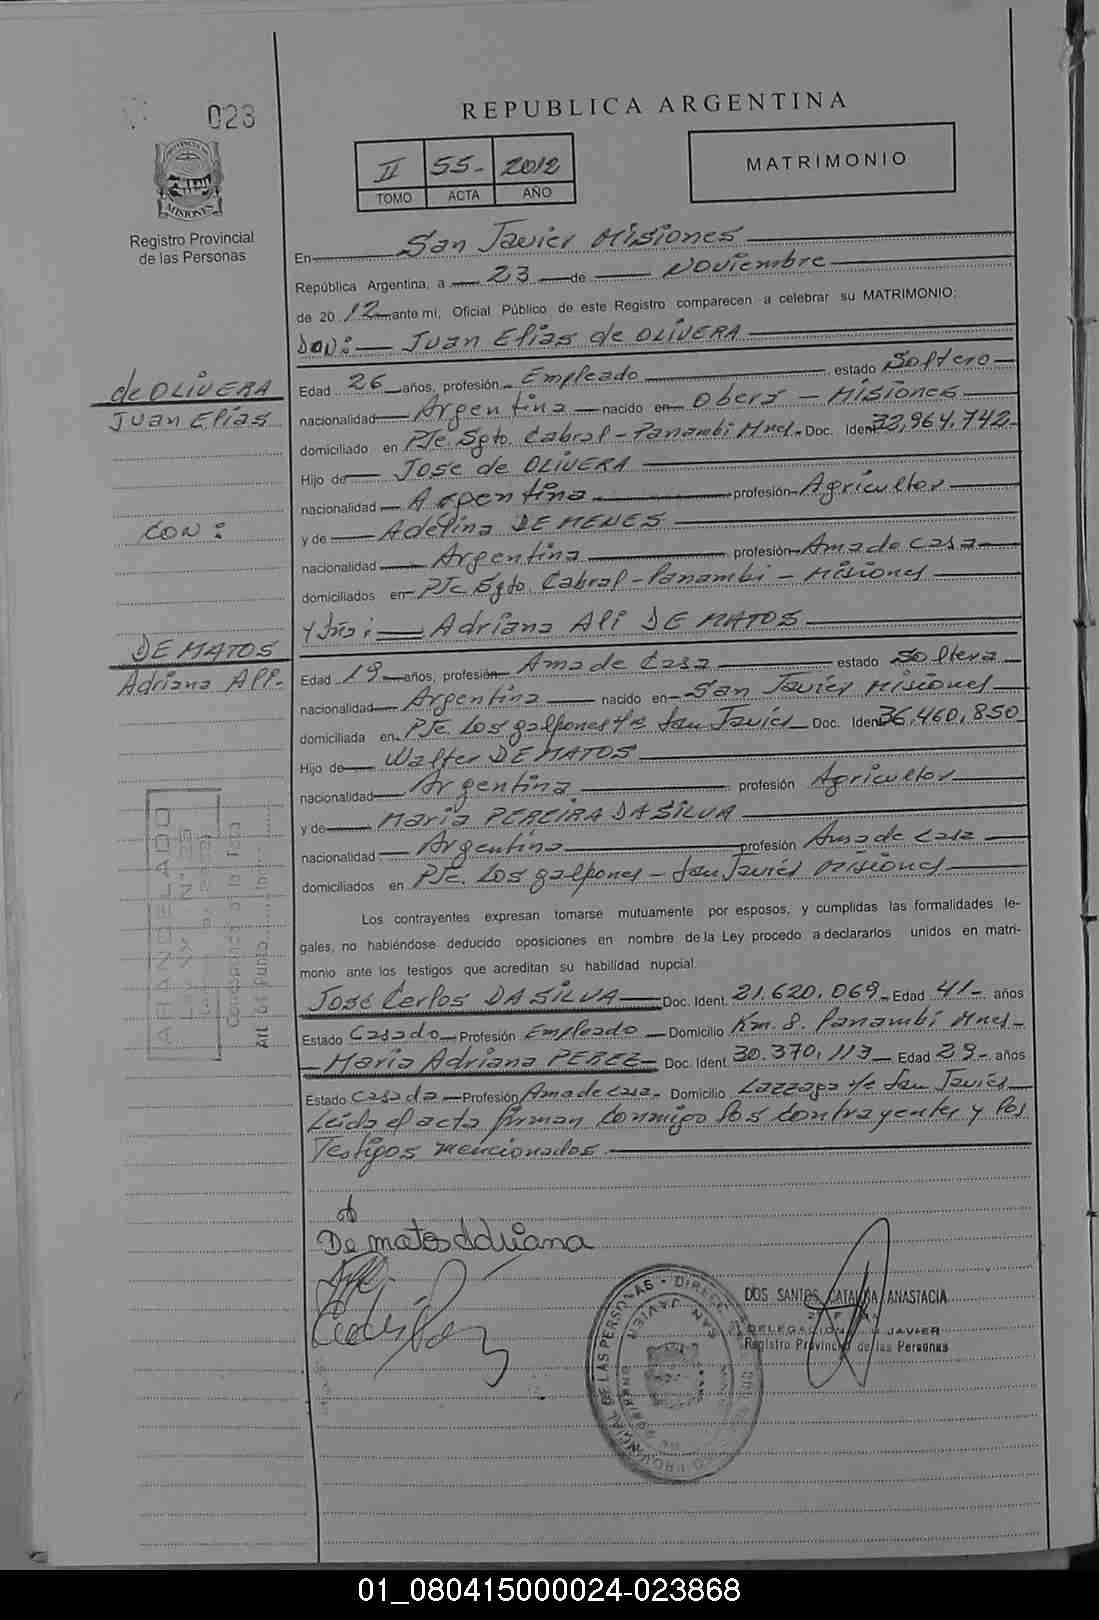 023
REPUBLICA ARGENTINA
II 55- 2012
TOMO ACTA AÑO
MATRIMONIO
MISIONES
Registro Provincial
de las Personas
En San Javier Misiones
República Argentina, a 23 de Noviembre
de 20 12 ante mí, Oficial Público de este Registro comparecen a celebrar su MATRIMONIO:
DON: Juan Elías de OLIVERA
de OLIVERA
Juan Elías
Edad 26 años, profesión Empleado estado Soltero
nacionalidad Argentina nacido en Oberá - Misiones
domiciliado en Pje. Sgto. Cabral - Panambí Mnes. Doc. Ident 32,964,742-
Hijo de Jose de OLIVERA
nacionalidad Argentina profesión Agricultor
CON:
y de Adelina DE MENES
nacionalidad Argentina profesión Ama de casa
domiciliados en Pje Sgto. Cabral - Panambí - Misiones
y Dña: Adriana Alí DE MATOS
DE MATOS
Adriana Alí.
Edad 19 años, profesión Ama de Casa estado Soltera
nacionalidad Argentina nacido en San Javier Misiones
domiciliada en Pje Los galpones San Javier Doc. Ident 36,460,850
Hijo de Walter DE MATOS
nacionalidad Argentina profesión Agricultor
y de Maria PEREIRA DA SILVA
nacionalidad Argentina profesión Ama de casa
domiciliados en Pje. Los galpones - San Javier Misiones
ARANCELADO
Ley Nº
Corresponde a la Tasa
Art. del Punto Inc.
Los contrayentes expresan tomarse mutuamente por esposos, y cumplidas las formalidades le-
gales, no habiéndose deducido oposiciones en nombre de la Ley procedo a declararlos unidos en matri-
monio ante los testigos que acreditan su habilidad nupcial.
José Carlos DA SILVA Doc. Ident. 21.620.069 - Edad 41- años
Estado Casado Profesión Empleado Domicilio Km. 8. Panambí Mnes-
Maria Adriana PEREZ Doc. Ident. 30.370,113 Edad 29- años
Estado Casada Profesión Ama de casa. Domicilio San Javier
Leida el acta firman conmigo los contrayentes y los
Testigos mencionados
De matos Adriana
DOS SANTOS, CATALINA ANASTACIA
DELEGACION JAVIER
Registro Provincial de las Personas
SAN JAVIER
01_080415000024-023868